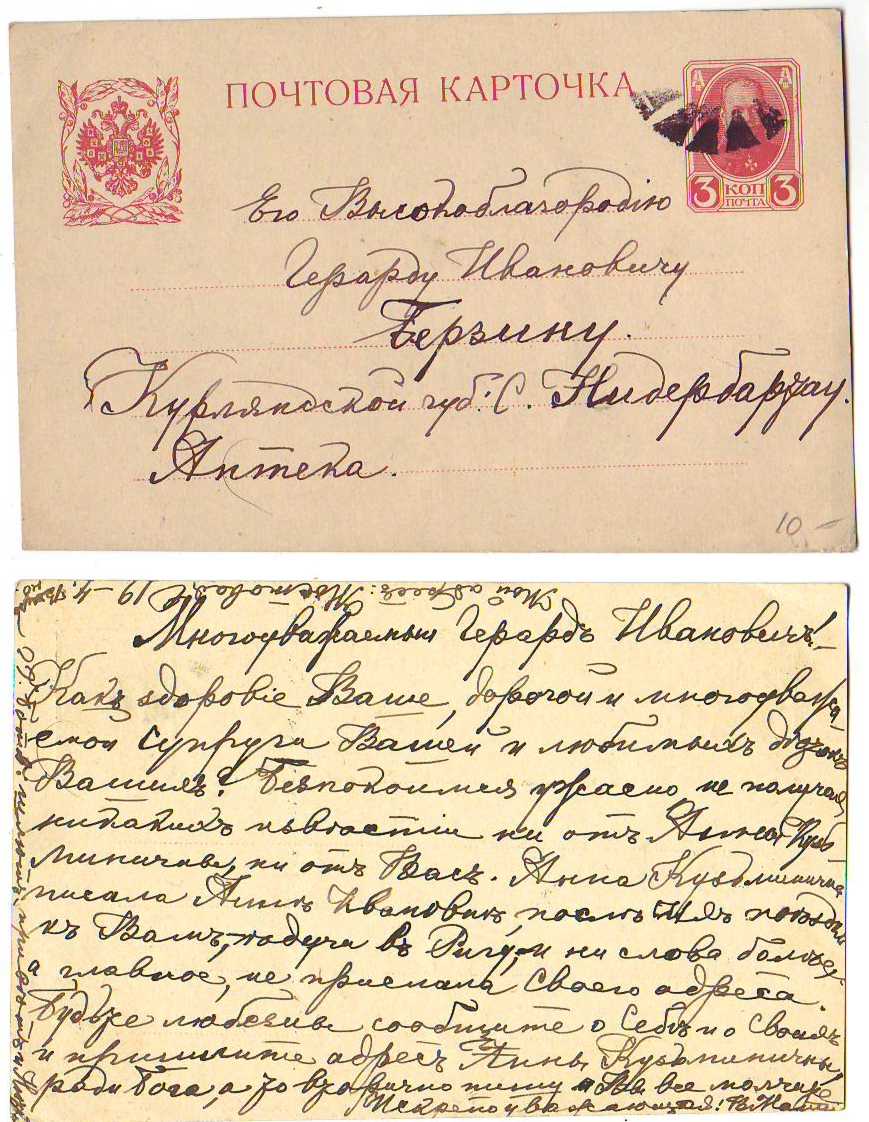 ПОЧТОВАЯ КАРТОЧКА
А А
3 КОП 3
ПОЧТА
Его Высокоблагородію
Герарду Ивановичу
Берзину.
Курляндской губ: С. Нидербартау.
Аптека.
10 –
Мой адресъ: 19 – 4.
Многоуважаемый Герардъ Ивановичъ!
Какъ здоровіе Ваше, дорогой и многоуважа-
емой супруги Вашей и любимыхъ дѣтокъ
Вашихъ? Безпокоимся ужасно не получая
никакихъ извѣстій ни отъ Анны Кузь-
миничны, ни отъ Васъ. Анна Кузьминична
писала Аннѣ Ивановнѣ, послѣ поѣздки
къ Вамъ, ѣдучи въ Ригу, и ни слова болѣе
а главное, не прислала своего адреса
Будьте любезны сообщите о Себѣ и о Своихъ
и пришлите адресъ Анны Кузьминичны,
ради Бога, а то пишу а Вы все молчите
Искренно уважающая! В.